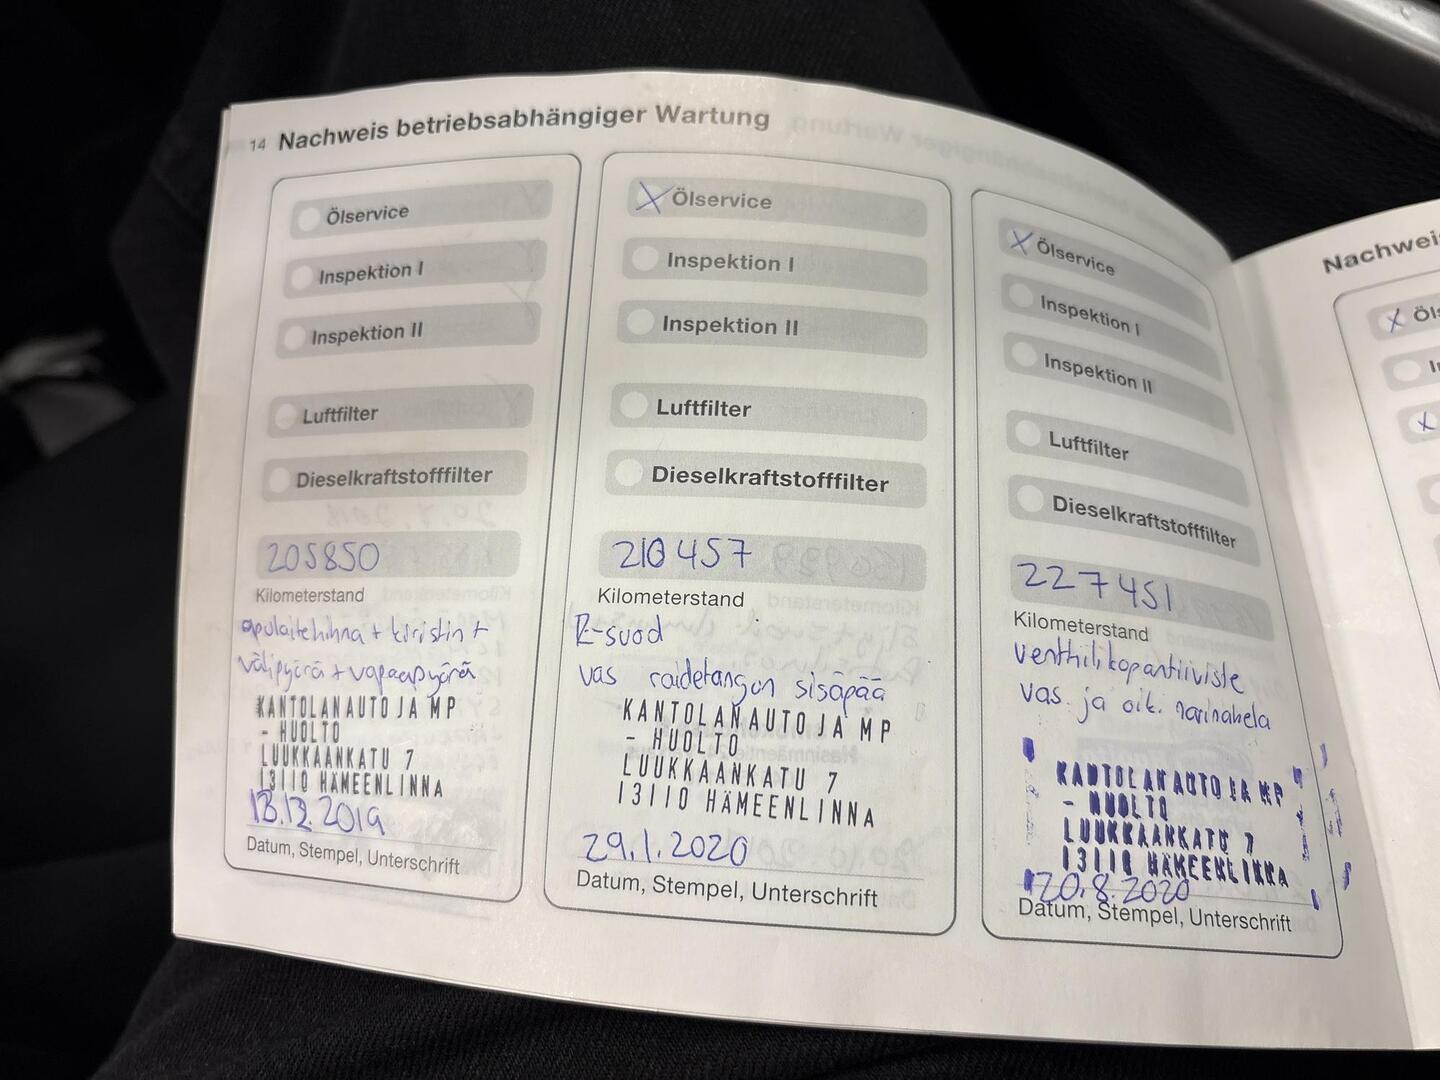 14 Nachweis betriebsabhängiger Wartung
Ölservice
Inspektion I
Inspektion II
Luftfilter
Dieselkraftstofffilter
205850
Kilometerstand
apulaitehihna + kiristin +
välipyörä + vapaapyörä
KANTOLAN AUTO JA MP
- HUOLTO
LUUKKAANKATU 7
13110 HÄMEENLINNA
13.12.2019
Datum, Stempel, Unterschrift
X Ölservice
Inspektion I
Inspektion II
Luftfilter
Dieselkraftstofffilter
210457
Kilometerstand
R-suod
vas raidetangon sisäpää
KANTOLAN AUTO JA MP
- HUOLTO
LUUKKAANKATU 7
13110 HÄMEENLINNA
29.1.2020
Datum, Stempel, Unterschrift
X Ölservice
Inspektion I
Inspektion II
Luftfilter
Dieselkraftstofffilter
227451
Kilometerstand
venttiilikopantiiviste
vas. ja oik.
KANTOLAN AUTO JA MP
- HUOLTO
LUUKKAANKATU 7
13110 HÄMEENLINNA
20.8.2020
Datum, Stempel, Unterschrift
Nachwei
X Öls
X